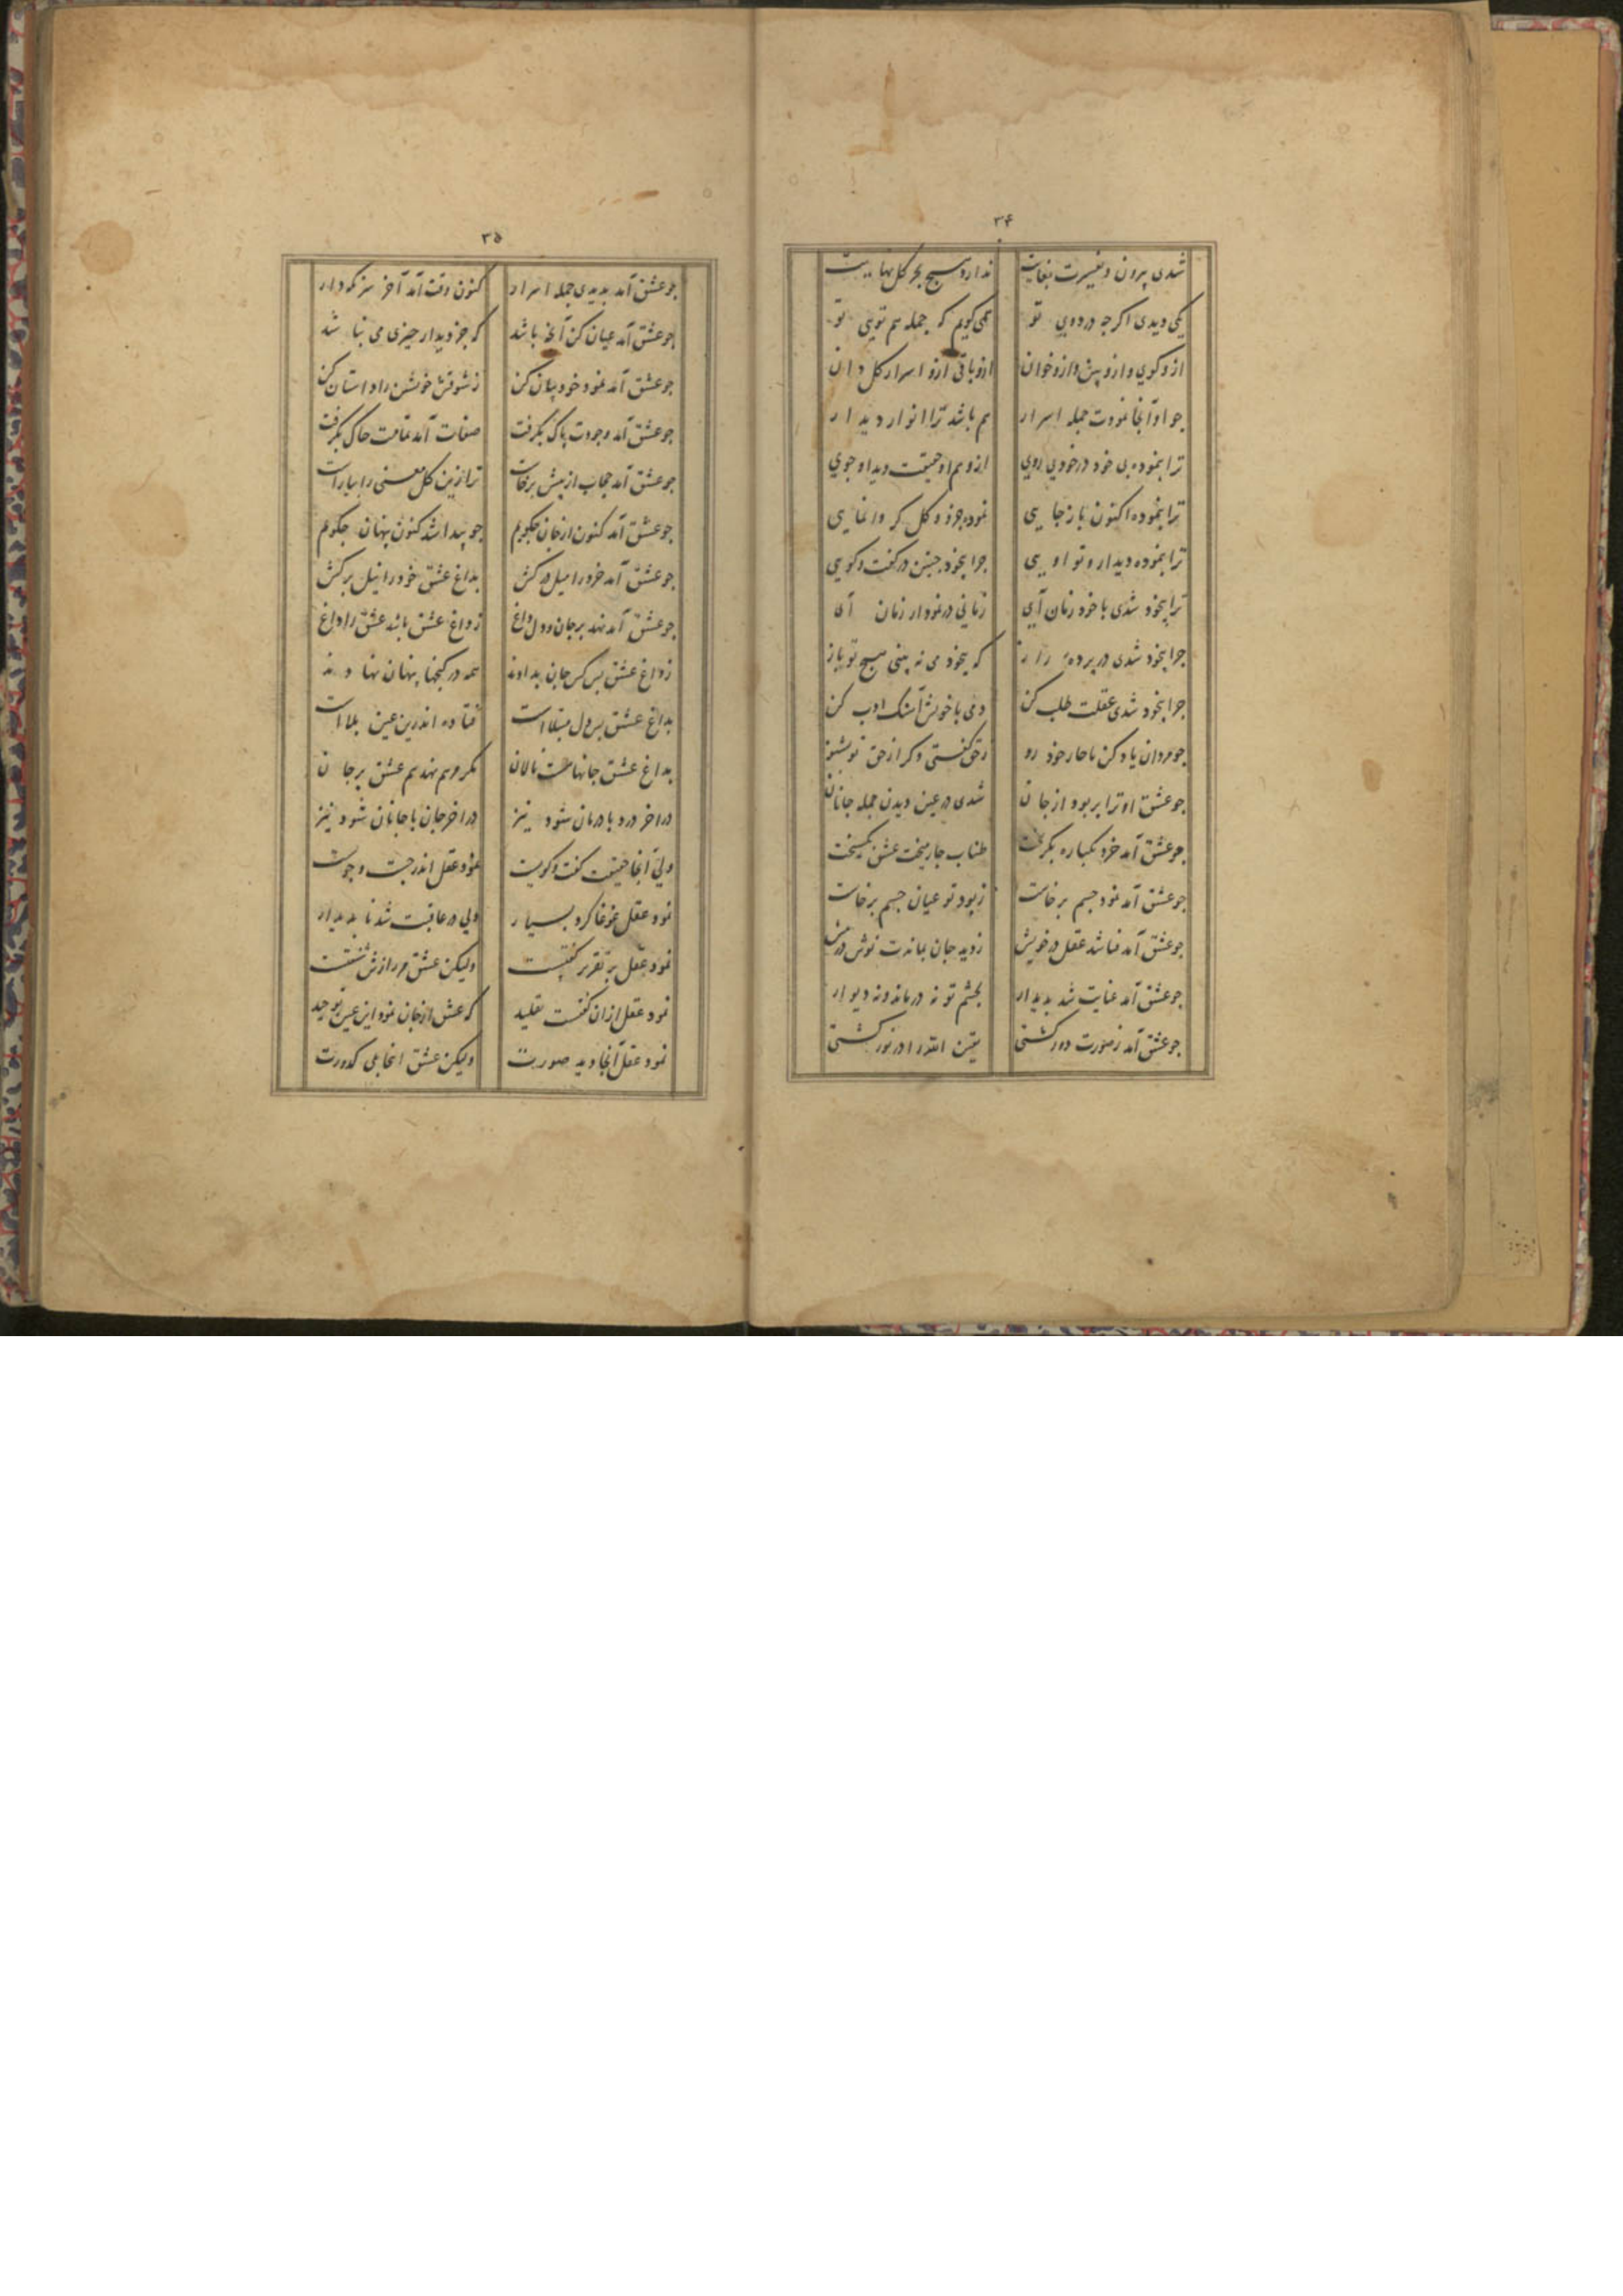 ۳۴
شدی بیرون و سیرت بغایت ندارد هیچ بحر کل نهایت
یکی دیدی اکرچه در دویی تو همی کویم که جمله هم تویی تو
ازو کوی و ازو بین و ازو خوان ازو باقی ازو اسرار کل دان
چو او آنجا نمودت جمله اسرار هم باشد ترا انوار دیدار
ترا بنموده بی خود در خودی روی ازو هم او حقیقت دید او جوی
ترا بنموده اکنون باز جایی نموده جزو و کل کر وانمایی
ترا بنموده دیدار و تو اویی چرا بیخود چنین در کفت و کویی
ترا بیخود شدی با خود زمان آی زمانی در نمودار زمان آی
چرا بیخود شدی در پرده راز که بیخود می نه بینی هیچ تو باز
چرا بیخود شدی عقلت طلب کن دمی با خویش آهنک ادب کن
چو مردان یاد کن با خود رو ز حق کفتی و کر از حق تو بشنو
چو عشق او ترا بربود از جان شدی در عین دیدن جمله جانان
چو عشق آمد خرد یکباره بکریخت طناب چارمیخت عشق بکسیخت
چو عشق آمد نمود جسم برخاست ز بود تو عیان جسم برخاست
چو عشق آمد فنا شد عقل در خویش ز دید جان بماندت نوش در نیش
چو عشق آمد عنایت شد بدیدار بچشم تو نه در ماند و نه دیوار
چو عشق آمد ز صورت دور کشتی یقین الله را در نور کشتی
۳۵
چو عشق آمد بدیدی جمله اسرار کنون وقت آمد آخر سر نکودار
چو عشق آمد عیان کن آنچه باشد که جز دیدار چیزی می نباشد
چو عشق آمد نمود خود بیان کن ز شوقش خویشتن را داستان کن
چو عشق آمد وجودت پاک بکرفت صفات آمد تمامت خاک بکرفت
چو عشق آمد حجاب از پیش برخاست ترا زین کل معنی را بیاراست
چو عشق آمد کنون از جان چکویم چو پیدا شد کنون پنهان چکویم
چو عشق آمد خرد را میل در کش بداغ عشق خود را نیل بر کش
چو عشق آمد نهد بر جان و دل داغ ز داغ عشق باشد عشق را داغ
ز داغ عشق بس کس جان بدادند همه در کنجها پنهان نهادند
بداغ عشق بس دل مبتلا است فتاده اندرین عین بلا است
بداغ عشق جانها هست نالان مکر مرهم نهد هم عشق بر جان
در آخر درد با درمان شود نیز در آخر جان با جانان شود نیز
ولی آنجا حقیقت کفت و کویست نمود عقل اندر جست و جویست
نمود عقل غوغا کرد بسیار ولی در عاقبت شد نا بدیدار
نمود عقل بر تقریر کفتست ولیکن عشق در رازش نهفتست
نمود عقل ازان کفتست تقلید که عشق از جان نمود این عین توحید
نمود عقل آنجا دید صورت ولیکن عشق آنجا بی کدورت